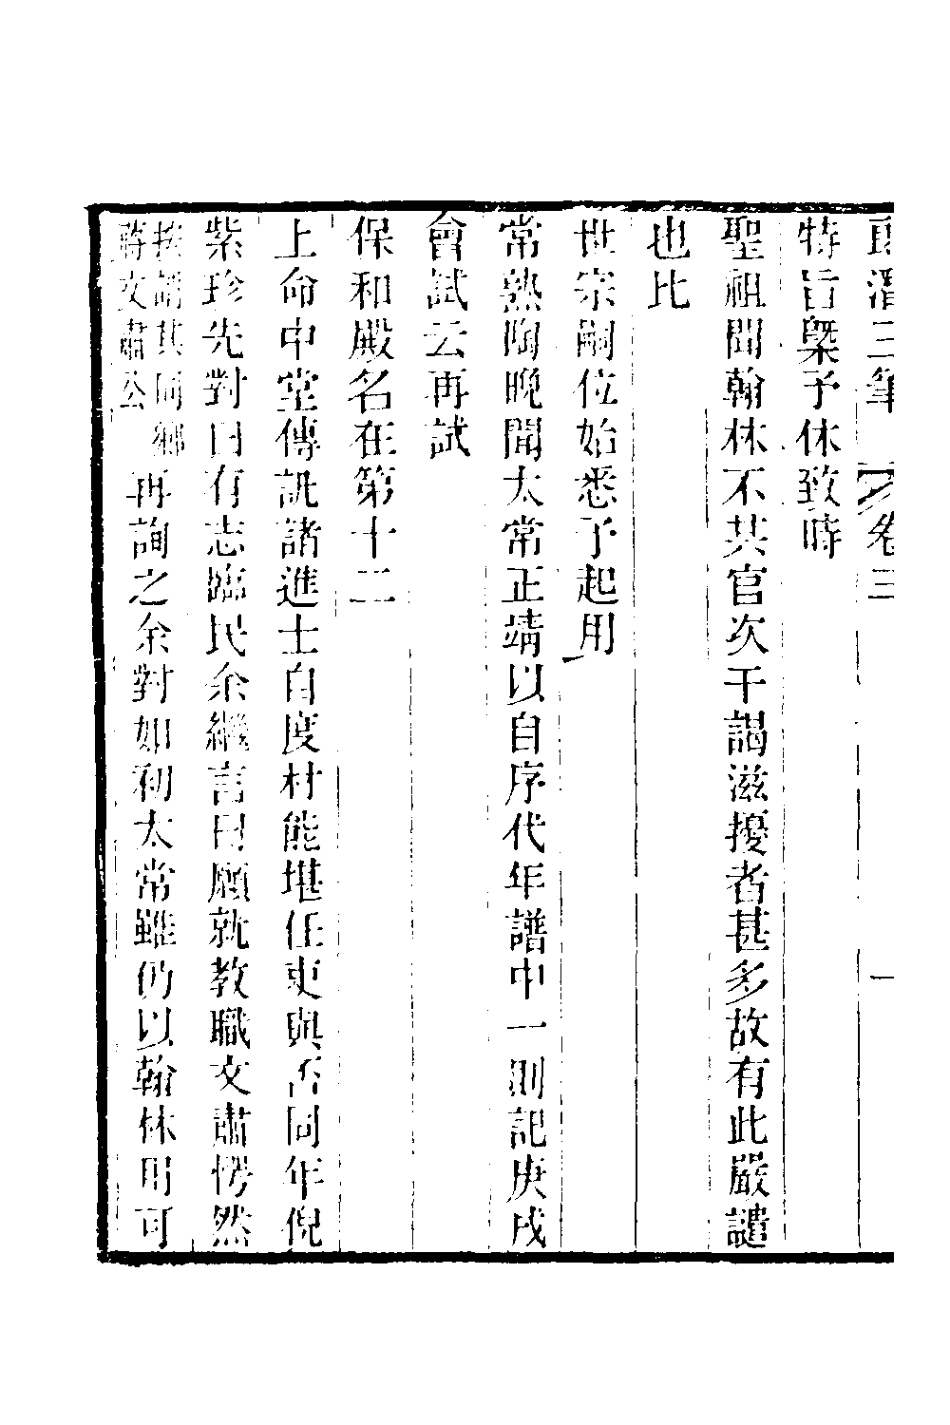 郎潛三筆 卷三 一
特旨槩予休致時
聖祖聞翰林不共官次干謁滋擾者甚多故有此嚴譴
也比
世宗嗣位始悉予起用
常熟陶晚聞太常正靖以自序代年譜中一則記庚戌
會試云再試
保和殿名在第十二
上命中堂傳訊諸進士自度材能堪任吏與否同年倪
紫珍先對曰有志臨民余繼言曰願就教職文肅愕然
按謂其同鄉
蔣文肅公
再詢之余對如初太常雖仍以翰林用可